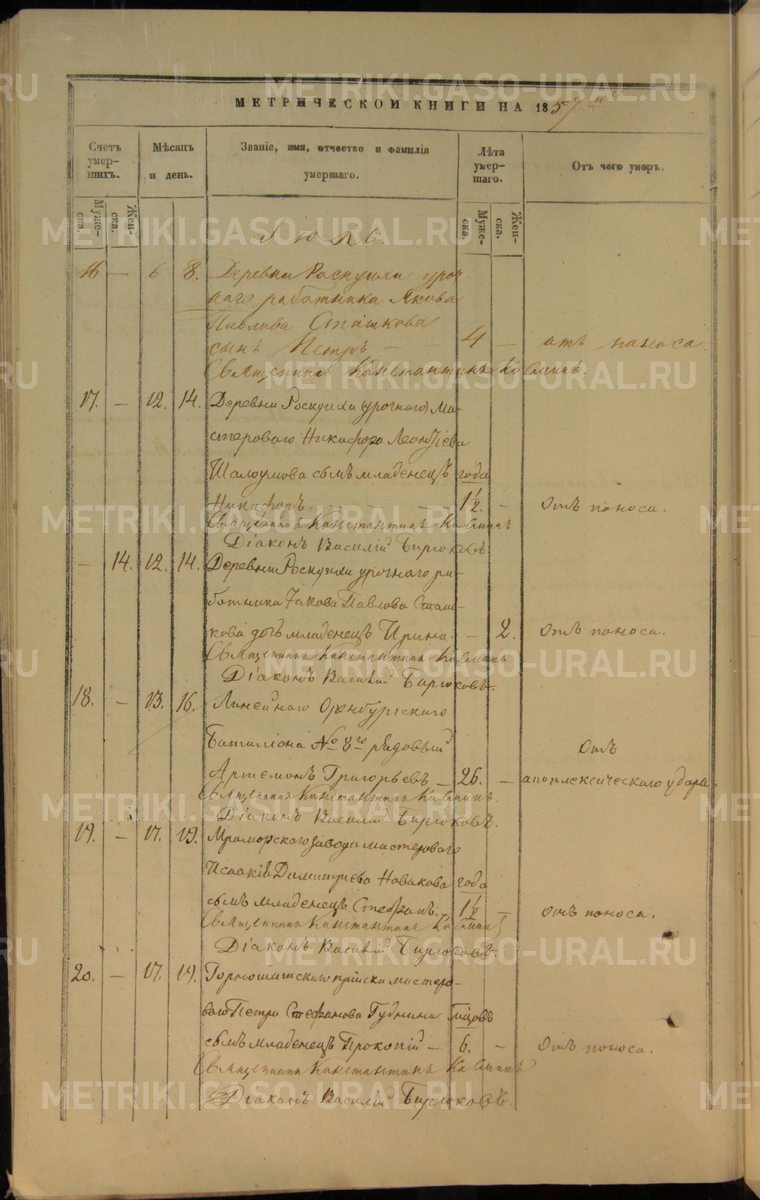 МЕТРИЧЕСКОЙ КНИГИ НА 1857
Счетъ умершихъ.
Мѣсяцъ и день.
Званіе, имя, отчество и фамилія умершаго.
Лѣта умершаго.
Отъ чего умеръ.
Мужеска.
Женска.
Мужеска.
Женска.
Іюль
16 — 6 8. Деревни Роскуихи уроч-
наго работника Якова
Павлова Сташкова
сынъ Петръ — — 4 — отъ поноса
Священникъ Константинъ
17. — 12. 14. Деревни Роскуихи урочнаго ма-
стероваго Никифора Леонтіева
Шалоумова сынъ младенецъ года
Никифоръ. 1½. — Отъ поноса.
Священникъ Константинъ
Діаконъ Василій Бирюковъ
— 14. 12. 14. Деревни Роскуихи урочнаго ра-
ботника Іакова Павлова Сташ-
кова дочь младенецъ Ирина. — 2. Отъ поноса.
Священникъ Константинъ
Діаконъ Василій Бирюковъ.
18. — 13. 16. Линейнаго Оренбургскаго
Баталіона № 8го рядовый Отъ
Артемонъ Григорьевъ — 26. — апоплексическаго удара.
Священникъ Константинъ
Діаконъ Василій Бирюковъ.
19. — 17. 19. Мраморскаго завода мастероваго
Исаакія Димитріева Новакова года
сынъ младенецъ Стефанъ. 1½ — Отъ поноса.
Священникъ Константинъ
Діаконъ Василій Бирюковъ.
20. — 17. 19. Горношитскаго пріиска мастеро-
ваго Петра Стефанова Гудкина
сынъ младенецъ Прокопій — 6. — Отъ поноса.
Священникъ Константинъ
Діаконъ Василій Бирюковъ
METRIKI.GASO-URAL.RU